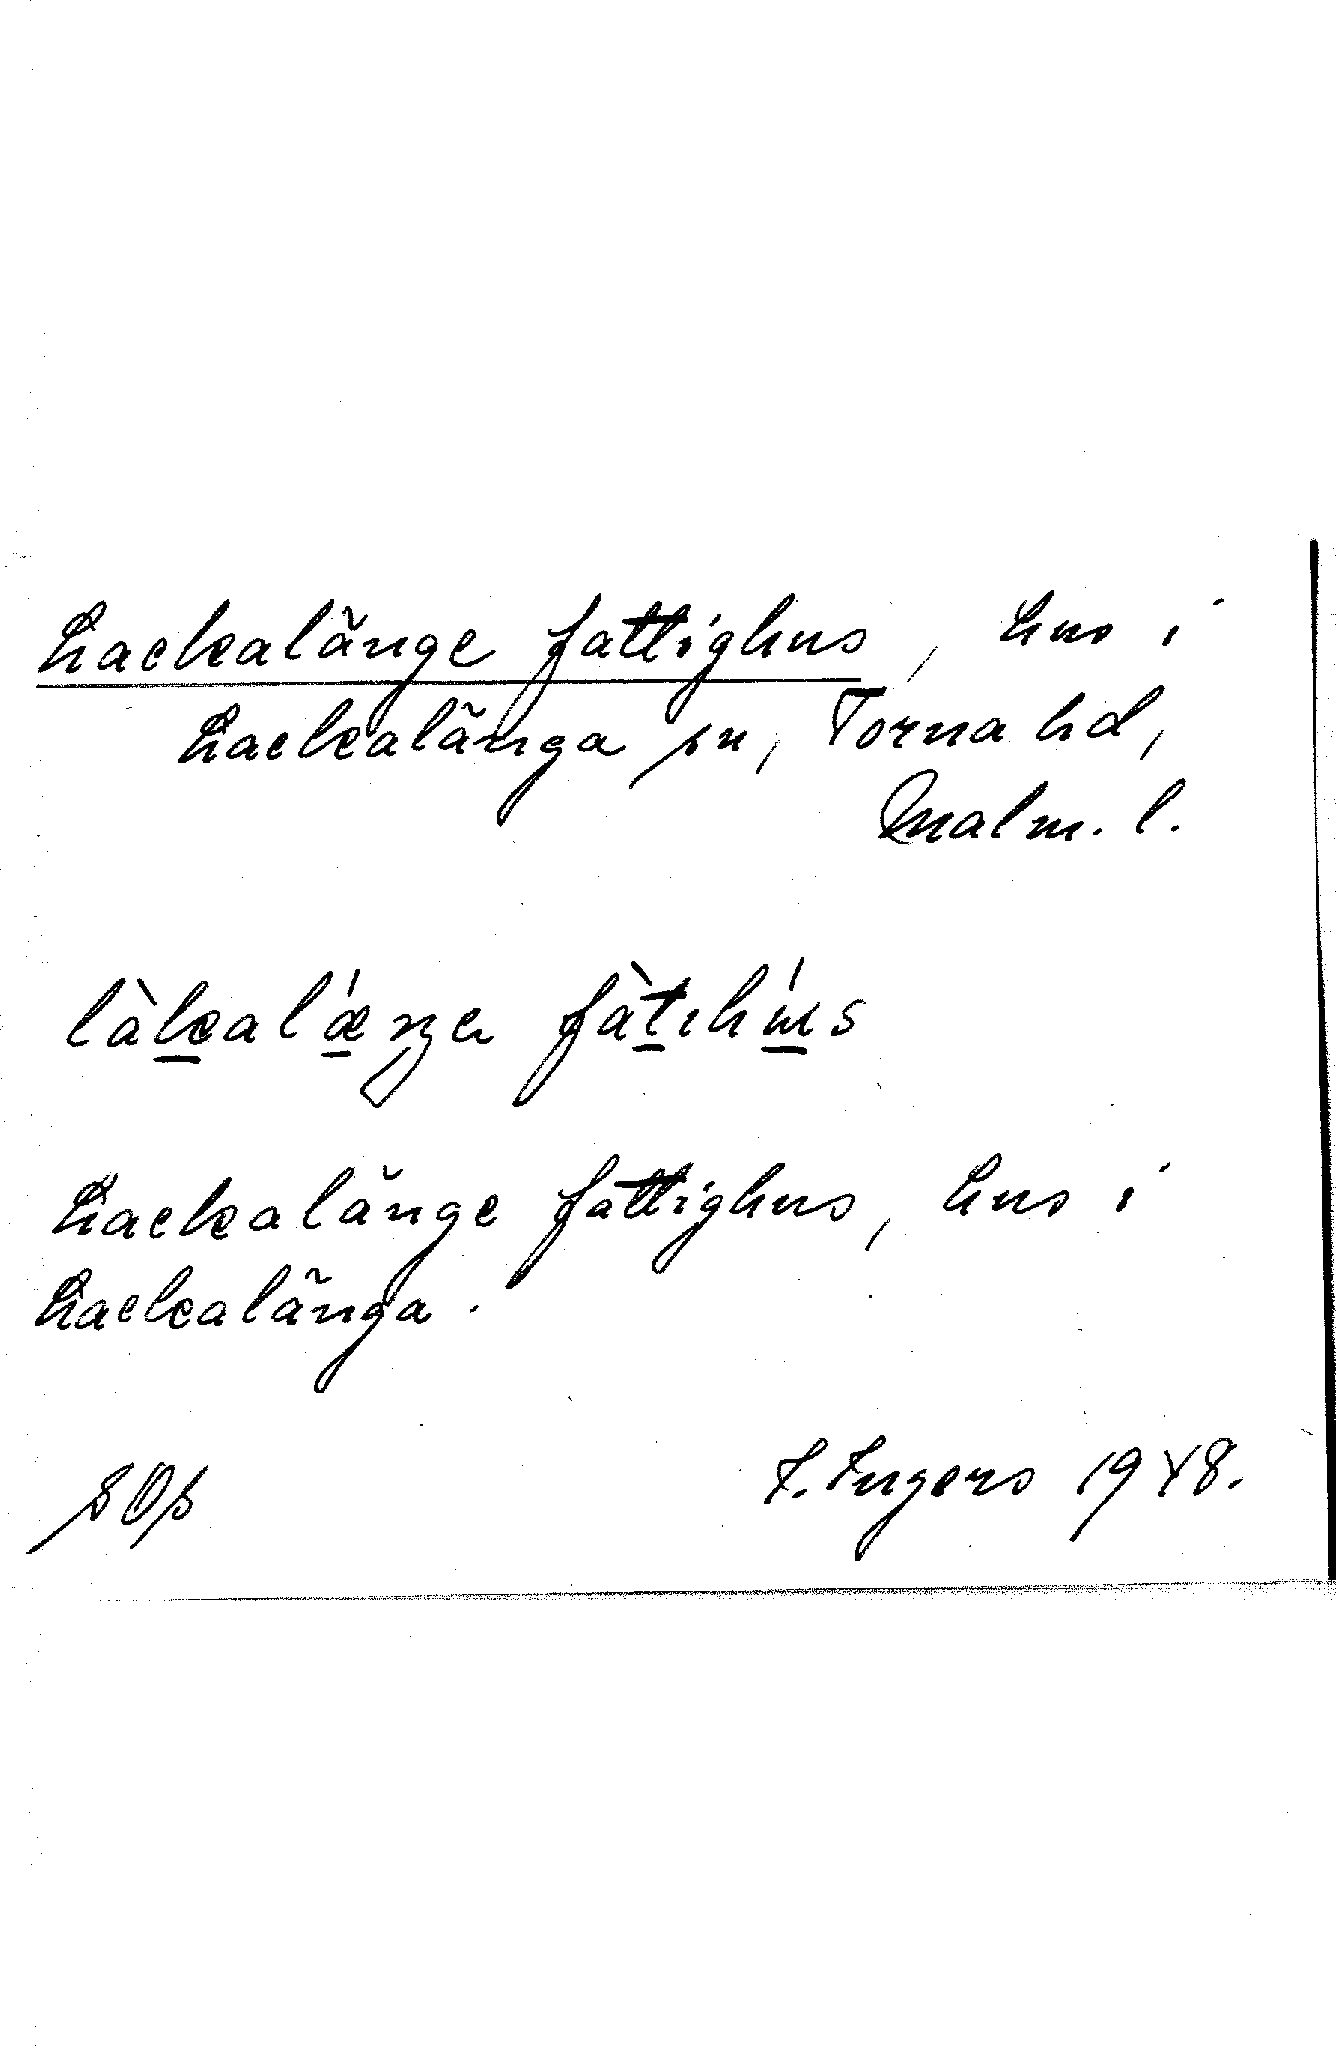 Lackalänge fattighus, hus i
Lackalänga sn, Torna hd,
Malm. l.
làkalǽŋə fàtıhús
Lackalänge fattighus, hus i
Lackalänga.
I. Ingers 1948.